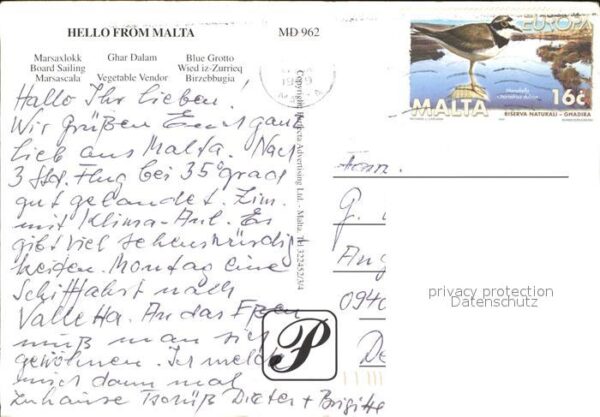 HELLO FROM MALTA
MD 962
Marsaxlokk
Board Sailing
Marsascala
Ghar Dalam
Vegetable Vendor
Blue Grotto
Wied iz-Zurrieq
Birzebbugia
EUROPA
MALTA
16c
RISERVA NATURALI - GHADIRA
Hallo Ihr Lieben!
Wir grüßen Euch ganz
lieb aus Malta. Nach
3 Std. Flug bei 35° grad
gut gelandet. Zim.
mit Klima-Anl. Es
gibt viel sehenswürdig-
keiten. Montag eine
Schiffahrt nach
Valletta. An das Essen
muß man sich
gewöhnen. Ich melde
mich dann mal
zuhause Tschüß Dieter + Brigitte
Copyright Perfecta Advertising Ltd. - Malta. Tel 322452/3/4
P
Fam.
G.
Ang
0940
De
privacy protection
Datenschutz